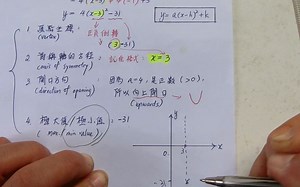 y = 4(x-3)² - 31
y = a(x-h)²+k
1 頂點坐標 :
(vertex)
(3, -31)
2 對稱軸的方程 :
(axis of symmetry)
x = 3
3 開口方向 :
(direction of opening)
當 a=4, 是正數 (>0),
所以向上開口
(upwards)
4 極大值/極小值 : -31
(max/min value)
y
x
3
-31